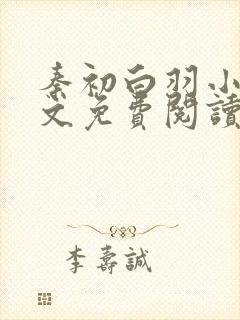 秦初白羽小
文免費閱讀
李壽誠